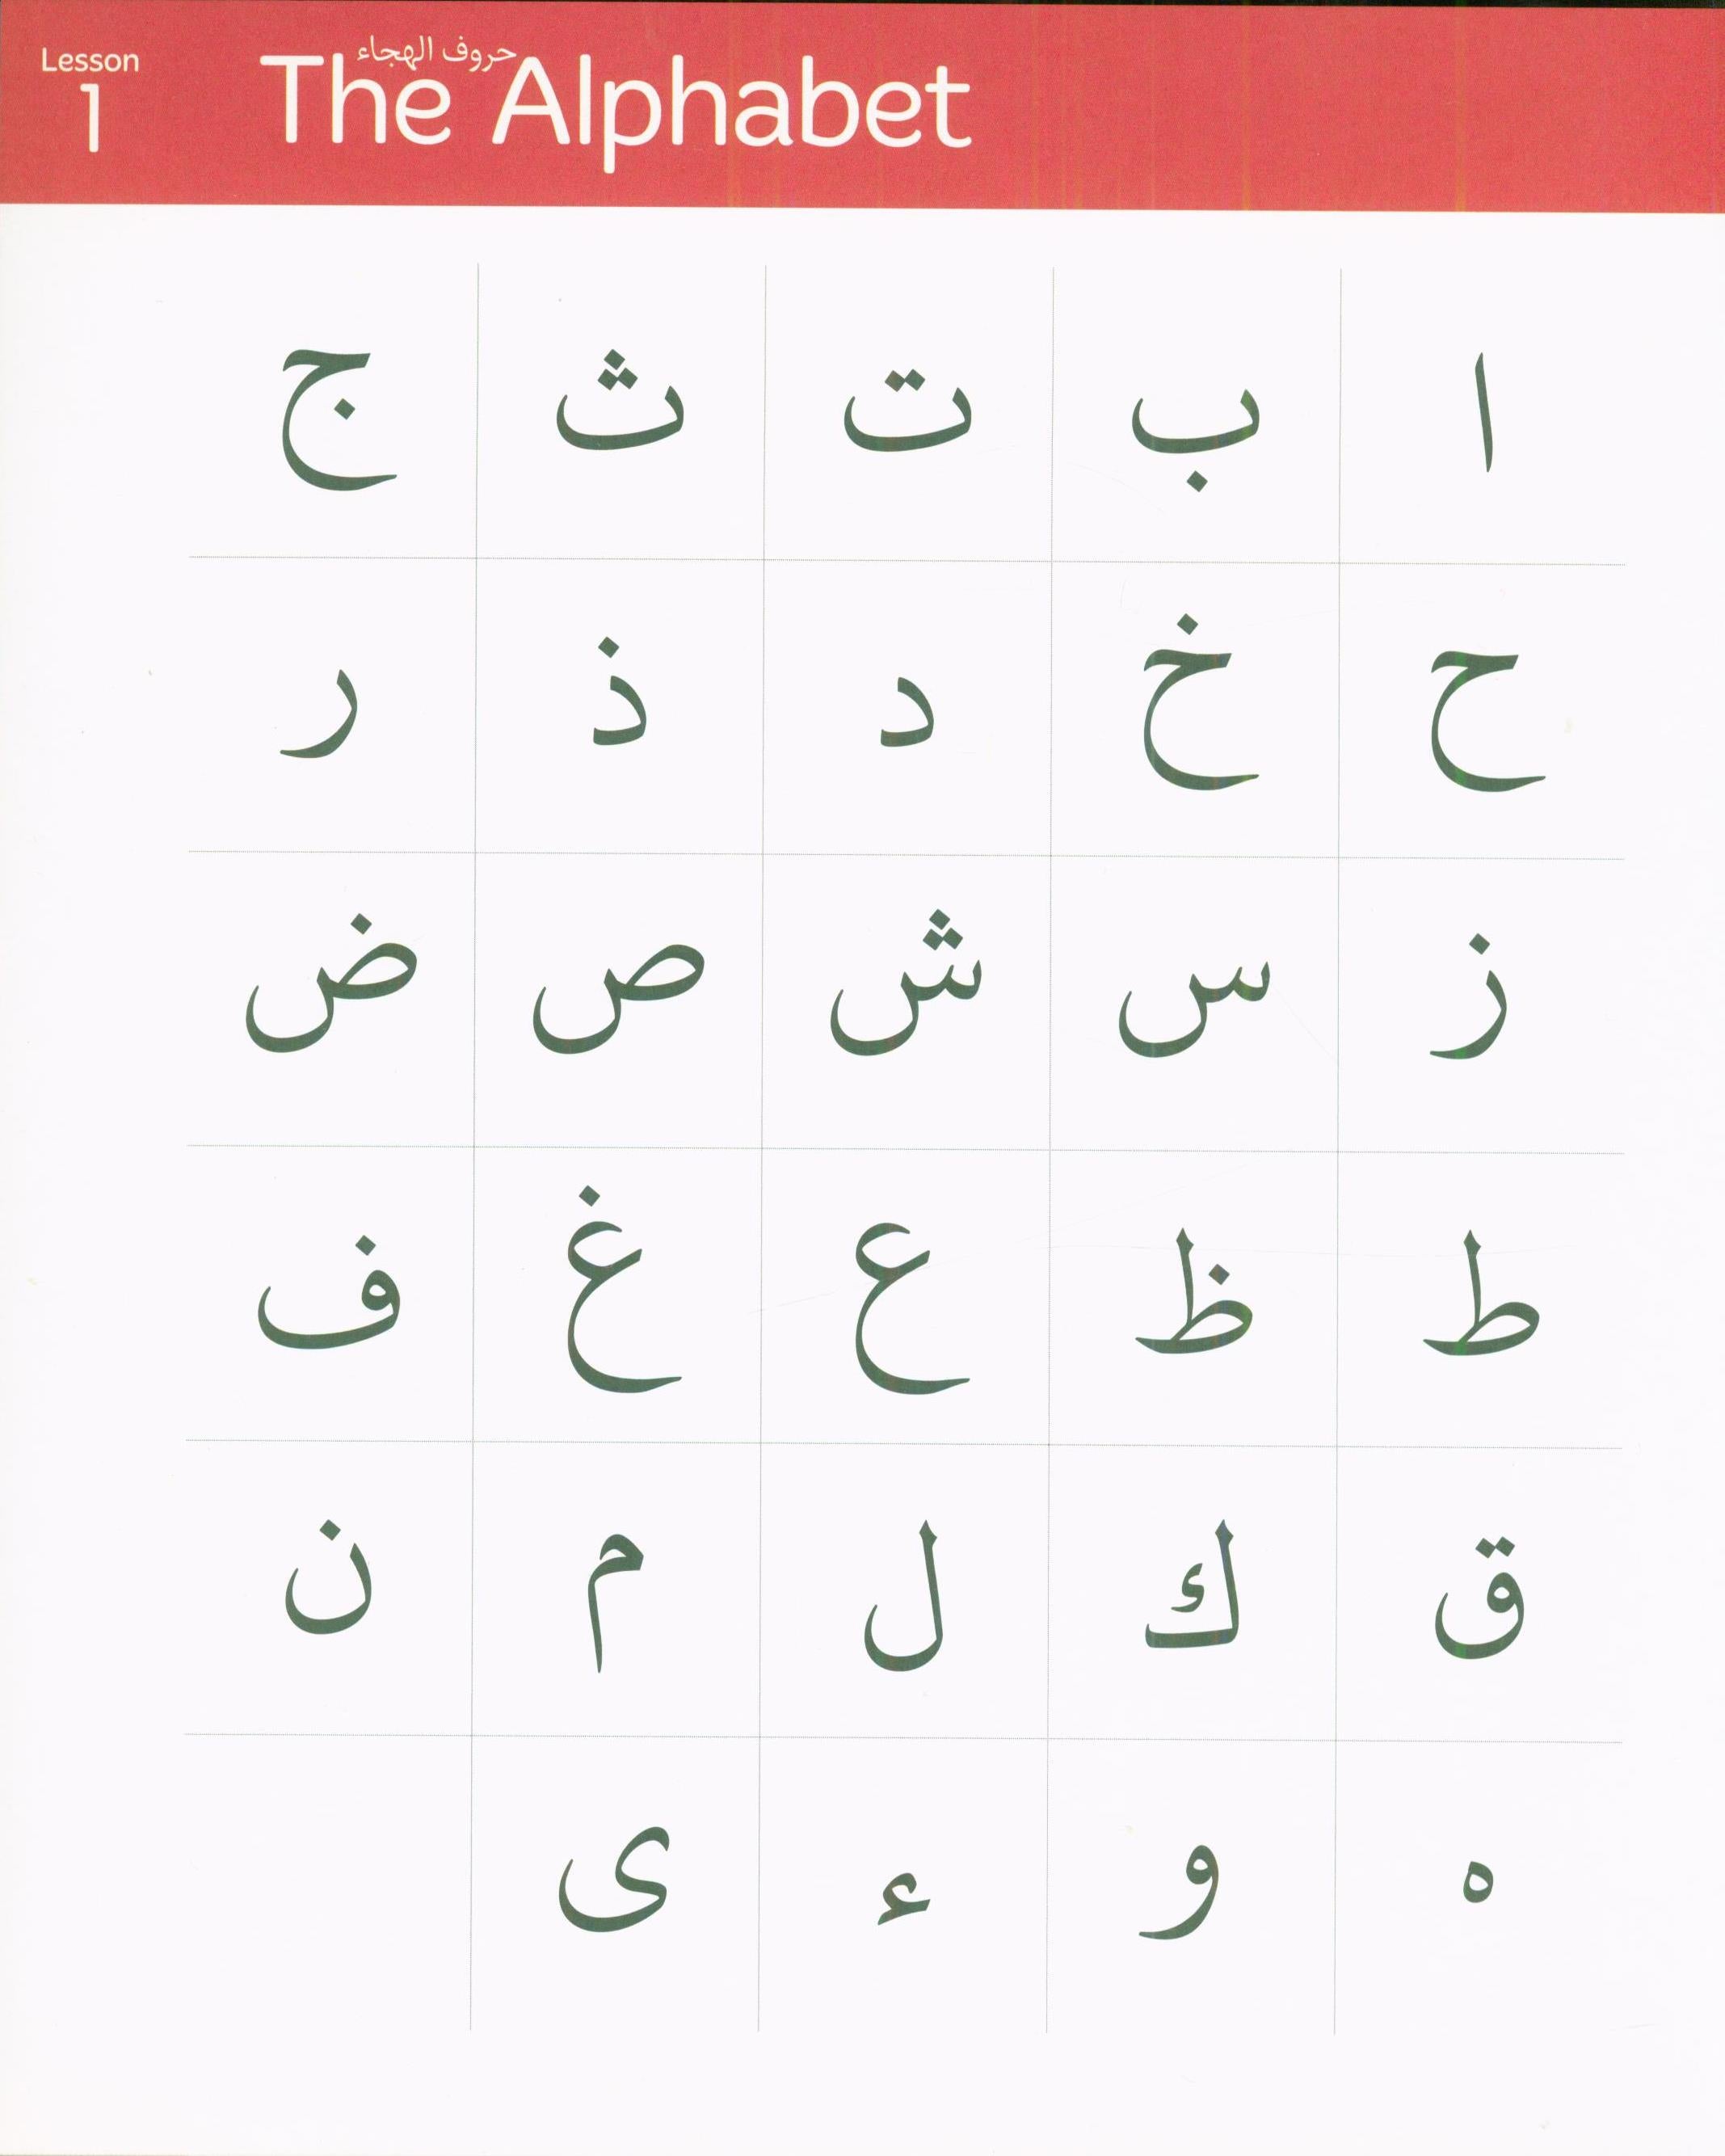 Lesson
1
حروف الهجاء
The Alphabet
ا ب ت ث ج
ح خ د ذ ر
ز س ش ص ض
ط ظ ع غ ف
ق ك ل م ن
ه و ء ى